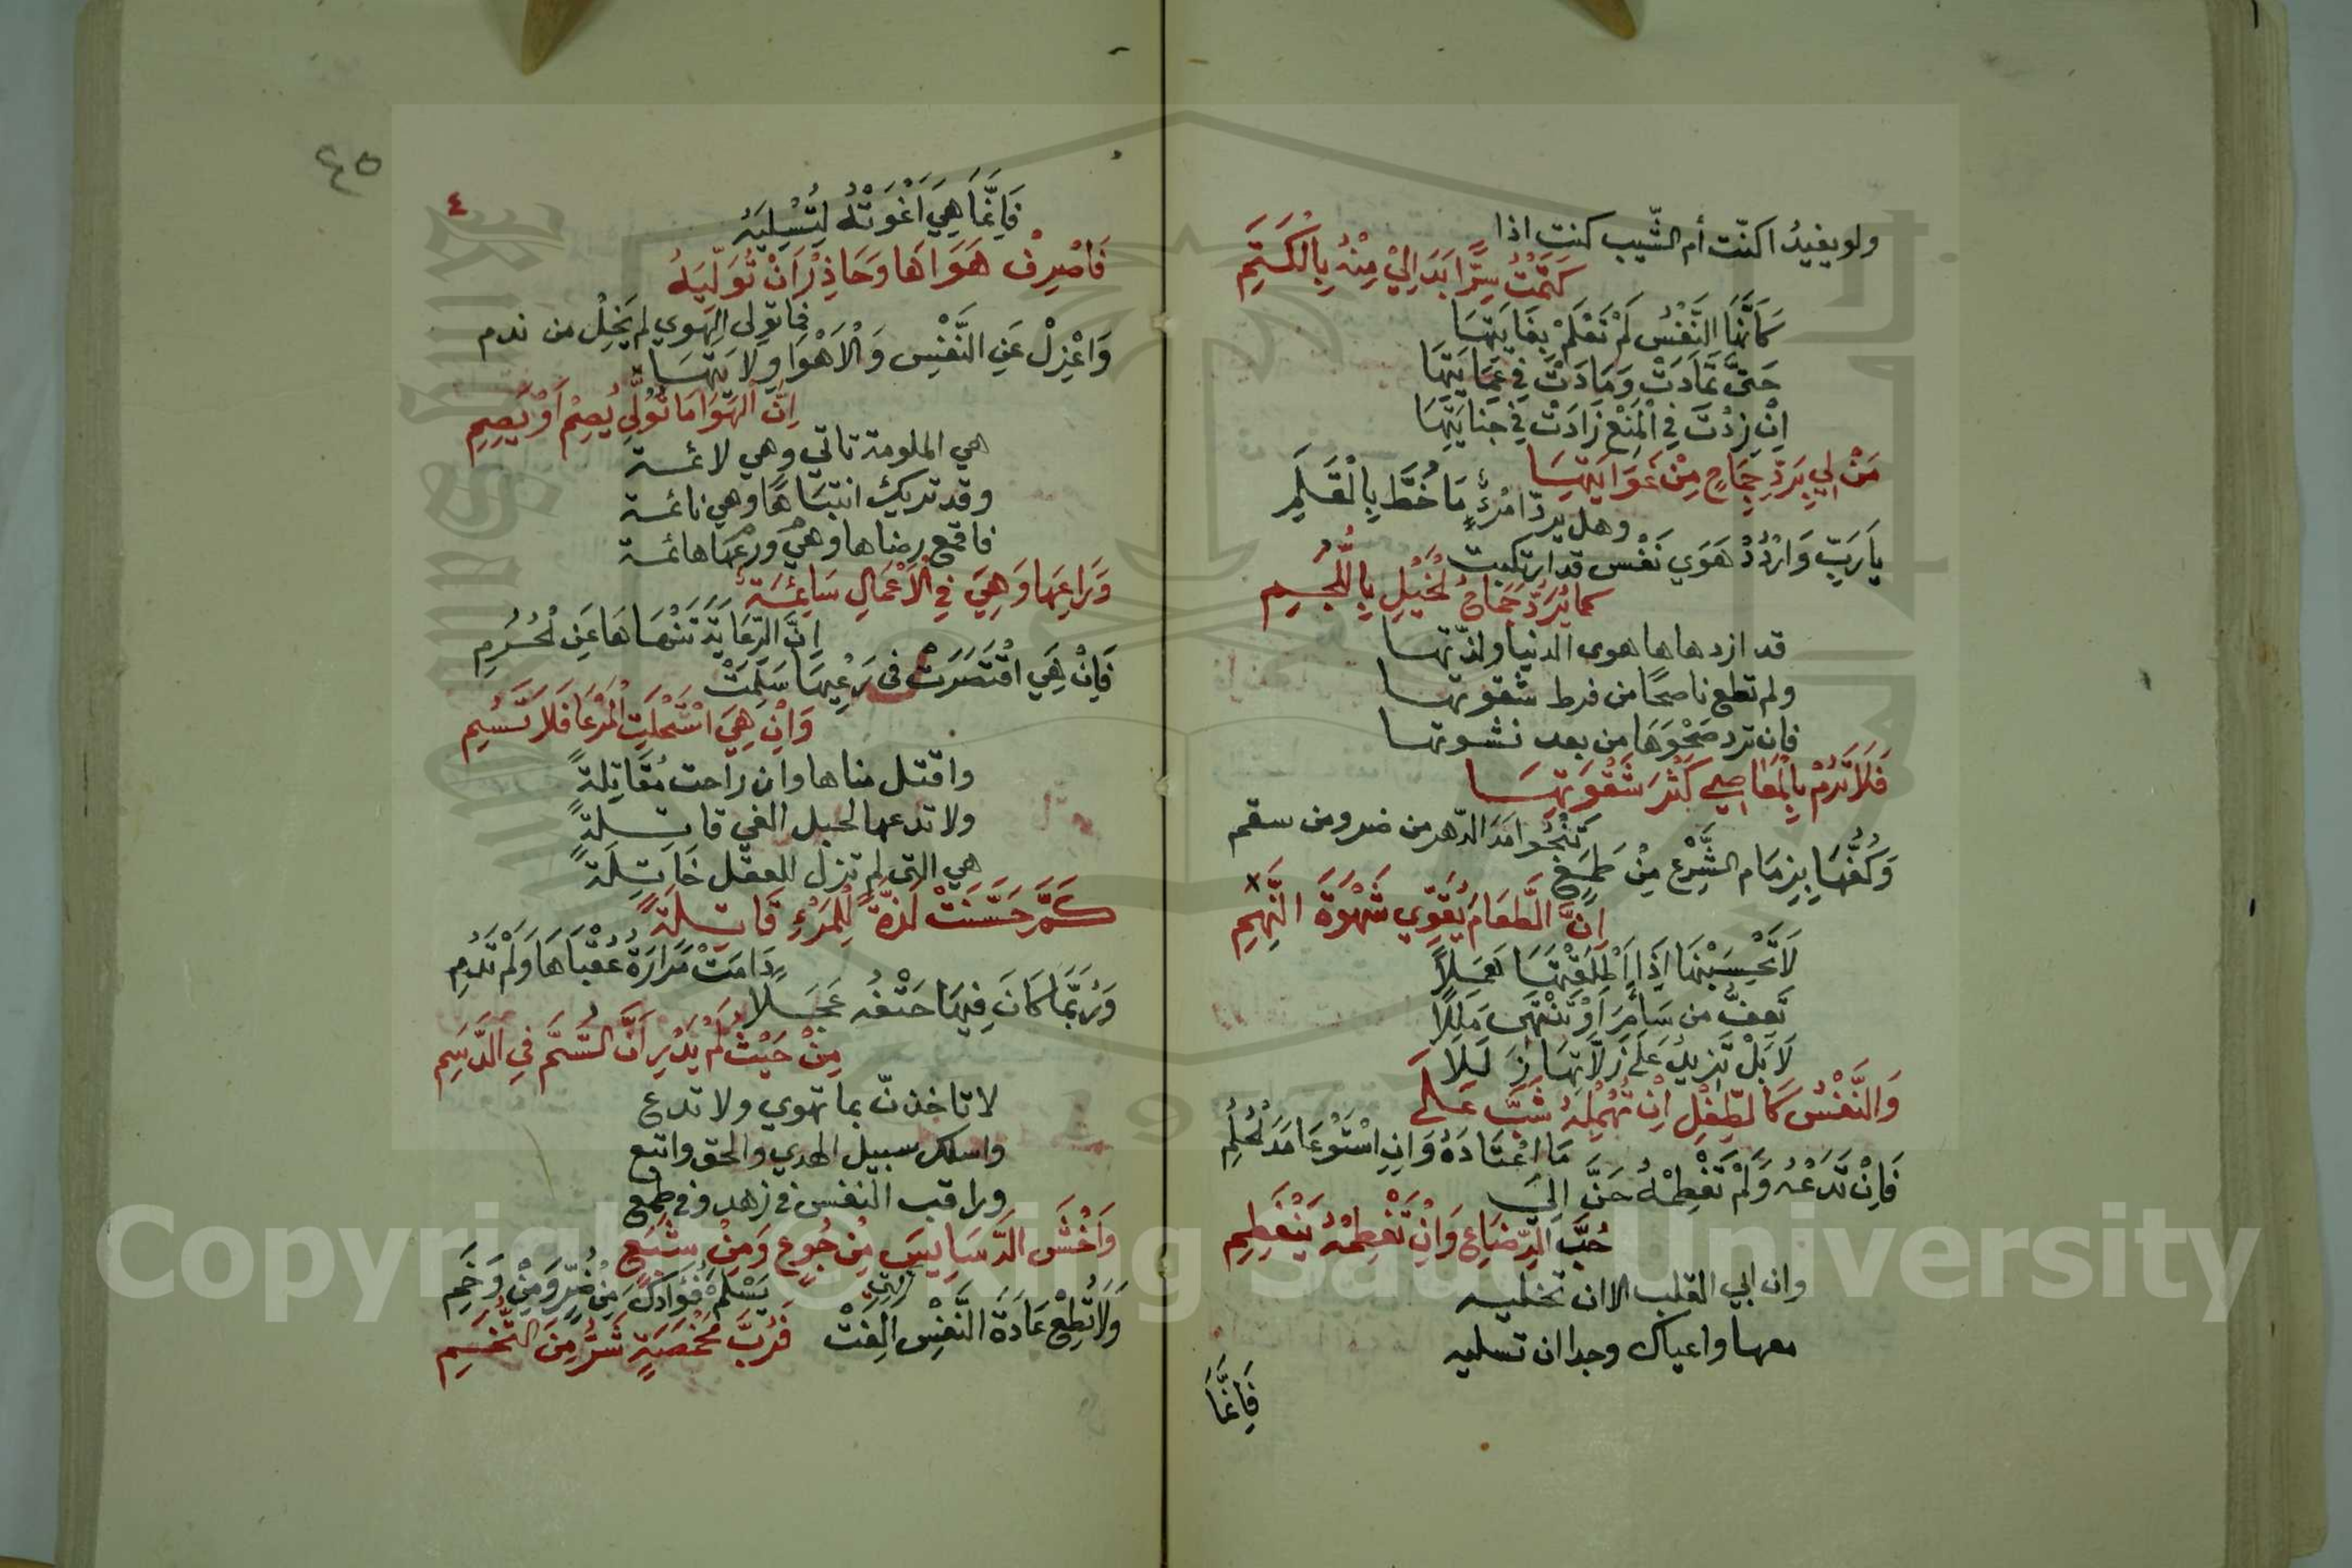 ولو يفيد اكنّت أم الشّيب كنت اذا
كَتَمْتُ سِرًّا بَدَا لِيْ مِنْهُ بِالْكَتَمِ
كَاَنَّهَا النَّفْسُ لَمْ تَعْلَمْ بِغَايَتِهَا
حَتَّى تَمَادَتْ وَمَادَتْ فِي عَمَايَتِهَا
اِنْ زِدْتَ فِي الْمَنْعِ زَادَتْ فِي جِنَايَتِهَا
مَنْ لِي بِرَدِّ جِمَاحٍ مِنْ غَوَايَتِهَا
وهل يردّ امْرُءٌ مَا خُطَّ بِالْقَلَمِ
يَا رَبِّ وَارْدُدْ هَوَي نَفْسٍ قد ارتكبت
كما يُرَدُّ جِمَاحُ الْخَيْلِ بِاللُّجُمِ
قد ازدهاها هوى الدنيا ولذّتها
ولم تطع ناصحًا من فرط شقوتها
فان ترد صَحْوَهَا من بعد نشوتها
فَلَا تَرُمْ بِالْمَعَاصِي كَسْرَ شَهْوَتِهَا
تَنْجُوا مَدَا الدّهر من ضر ومن سقم
وَكُفَّهَا بِزِمَامِ الشَّرْعِ مِنْ طَمَعٍ
اِنَّ الطَّعَامَ يُقَوِّي شَهْوَةَ النَّهِمِ
لَا تَحْسَبَنْهَا اِذَا اَطْلَقْتَهَا هَمَلًا
تَعِفُّ من سَأمَرَ اَوْ تَنْتَهِى مَلَلًا
لَا بَلْ تَزِيدُ عَلَى زَلَّاتِهَا زَلَلَا
وَالنَّفْسُ كَالطِّفْلِ اِنْ تُهْمِلْهُ شَبَّ عَلَى
مَا اعْتَادَهُ وَاِنِ اسْتَوْعَا مَدَ الْحُلُمِ
فَاِنْ تَدَعْهُ وَلَمْ تَفْطِمْهُ حَنَّ اِلَي
حُبِّ الرِّضَاعِ وَاِنْ تَفْطِمْهُ يَنْفَطِمِ
وان ابي القلب الا ان تخليه
معها واعياك وجدا ان تسليه
فَاِنَّمَا
٤٥
٤
فَاِنَّمَا هِيَ اَغْوَتْهُ لِتُسْلِيَهُ
فَاصْرِفْ هَوَاهَا وَحَاذِرْ اَنْ تُوَلِّيَهُ
فما تولى الهوي لم يَخْلُ من ندم
وَاعْزِلْ عَنِ النَّفْسِ وَالْاَهْوَا وِلَايَتَهَا
اِنَّ الْهَوَا مَا تَوَلَّى يُصْمِ اَوْ يَصِمِ
هي الملومة تاتي وهي لائمة
وقد تريك انتبَاهًا وهي نائمة
فاقمع رضاها وهي وَرْعَهَا هائمة
وَرَاعِهَا وَهِيَ فِي الْاَعْمَالِ سَائِمَةٌ
اِنَّ الرِّعَايَةَ تَنْهَاهَا عَنِ الْحُرُمِ
فَاِنْ هِيَ اقْتَصَرَتْ فى رَعْيِهَا سَلِمَتْ
وَاِنْ هِيَ اسْتَحْلَتِ الْمَرْعَا فَلَا تَسُمِ
واقتل مناها وان راحت مُقَاتِلَةً
ولا تدعها لحبل الغي قاتِلَةً
هي التي لم تزل للعقل خَاتِلَةً
كَمْ حَسَّنَتْ لَذَّةً لِلْمَرْءِ قَاتِلَةً
دَامَتْ مَرَارَةُ عُقْبَاهَا وَلَمْ تَدُمِ
وَرُبَّمَا كَانَ فِيهَا حَتْفُهُ عَجَلًا
مِنْ حَيْثُ لَمْ يَدْرِ اَنَّ السُّمَّ فِي الدَّسَمِ
لا تاخذنّ بما تهوي ولا تدع
واسلك سبيل الهدي والحق واتبع
وراقب النفس في زهد وفي طمع
وَاخْشَ الدَّسَايِسَ مِنْ جُوعٍ وَمِنْ شِبَعٍ
يَسْلَمْ فُؤَادَكَ مِنْ ضُرٍّ وَمِنْ وَخَمِ
وَلَا تُطِعْ عَادَةَ النَّفْسِ التي اَلِفَتْ
فَرُبَّ مَخْمَصَةٍ شَرٌّ مِنَ التُّخَمِ
Copyright © King Saud University
1957